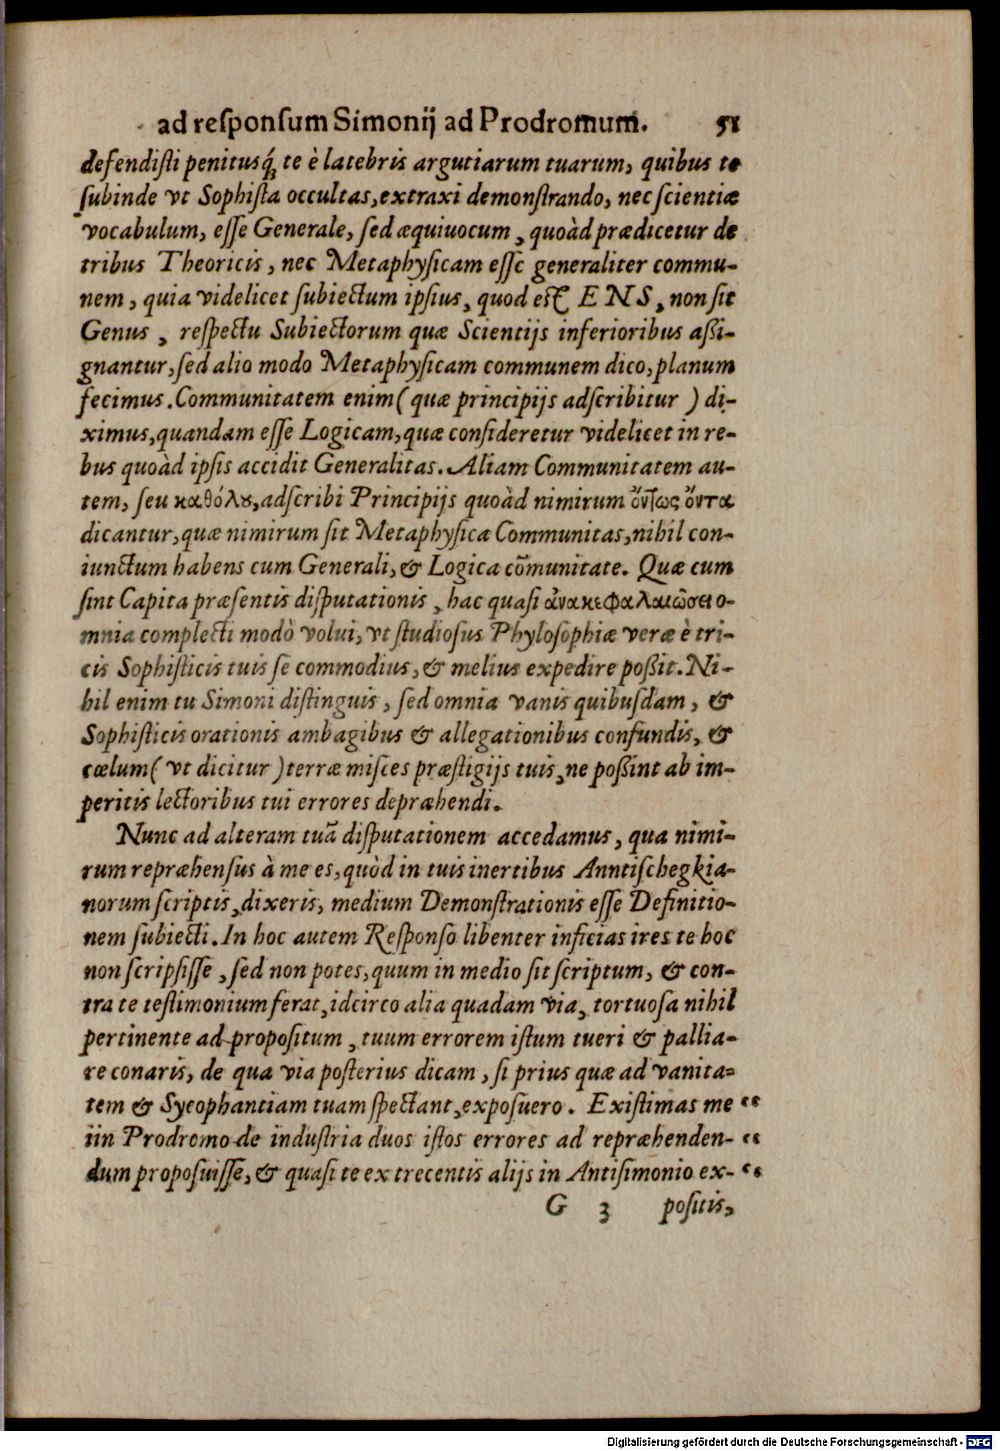 ad responsum Simonij ad Prodromum. 51
defendisti penitusq́ꝫ te è latebris argutiarum tuarum, quibus te
subinde vt Sophista occultas, extraxi demonstrando, nec scientiæ
vocabulum, esse Generale, sed æquiuocum, quoàd prædicetur de
tribus Theoricis, nec Metaphysicam esse generaliter commu-
nem, quia videlicet subiectum ipsius, quod est ENS, non sit
Genus, respectu Subiectorum quæ Scientijs inferioribus aßi-
gnantur, sed alio modo Metaphysicam communem dico, planum
fecimus. Communitatem enim (quæ principijs adscribitur) di-
ximus, quandam esse Logicam, quæ consideretur videlicet in re-
bus quoàd ipsis accidit Generalitas. Aliam Communitatem au-
tem, seu καθόλȣ, adscribi Principijs quoàd nimirum ὄντως ὄντα
dicantur, quæ nimirum sit Metaphysica Communitas, nihil con-
iunctum habens cum Generali, & Logica cōmunitate. Quæ cum
sint Capita præsentis disputationis, hac quasi ἀνακεφαλαιώσει o-
mnia complecti modò volui, vt studiosus Phylosophiæ veræ è tri-
cis Sophisticis tuis se commodius, & melius expedire poßit. Ni-
hil enim tu Simoni distinguis, sed omnia vanis quibusdam, &
Sophisticis orationis ambagibus & allegationibus confundis, &
cœlum (vt dicitur) terræ misces præstigijs tuis, ne poßint ab im-
peritis lectoribus tui errores depræhendi.
Nunc ad alteram tuā disputationem accedamus, qua nimi-
rum repræhensus à me es, quòd in tuis inertibus Anntischegkia-
norum scriptis, dixeris, medium Demonstrationis esse Definitio-
nem subiecti. In hoc autem Responso libenter inficias ires te hoc
non scripsisse, sed non potes, quum in medio sit scriptum, & con-
tra te testimonium ferat, idcirco alia quadam via, tortuosa nihil
pertinente ad propositum, tuum errorem istum tueri & pallia-
re conaris, de qua via posterius dicam, si prius quæ ad vanita-
tem & Sycophantiam tuam spectant, exposuero. Existimas me “
iin Prodromo de industria duos istos errores ad repræhenden- “
dum proposuisse, & quasi te ex trecentis alijs in Antisimonio ex- “
G 3 positis,
Digitalisierung gefördert durch die Deutsche Forschungsgemeinschaft - DFG